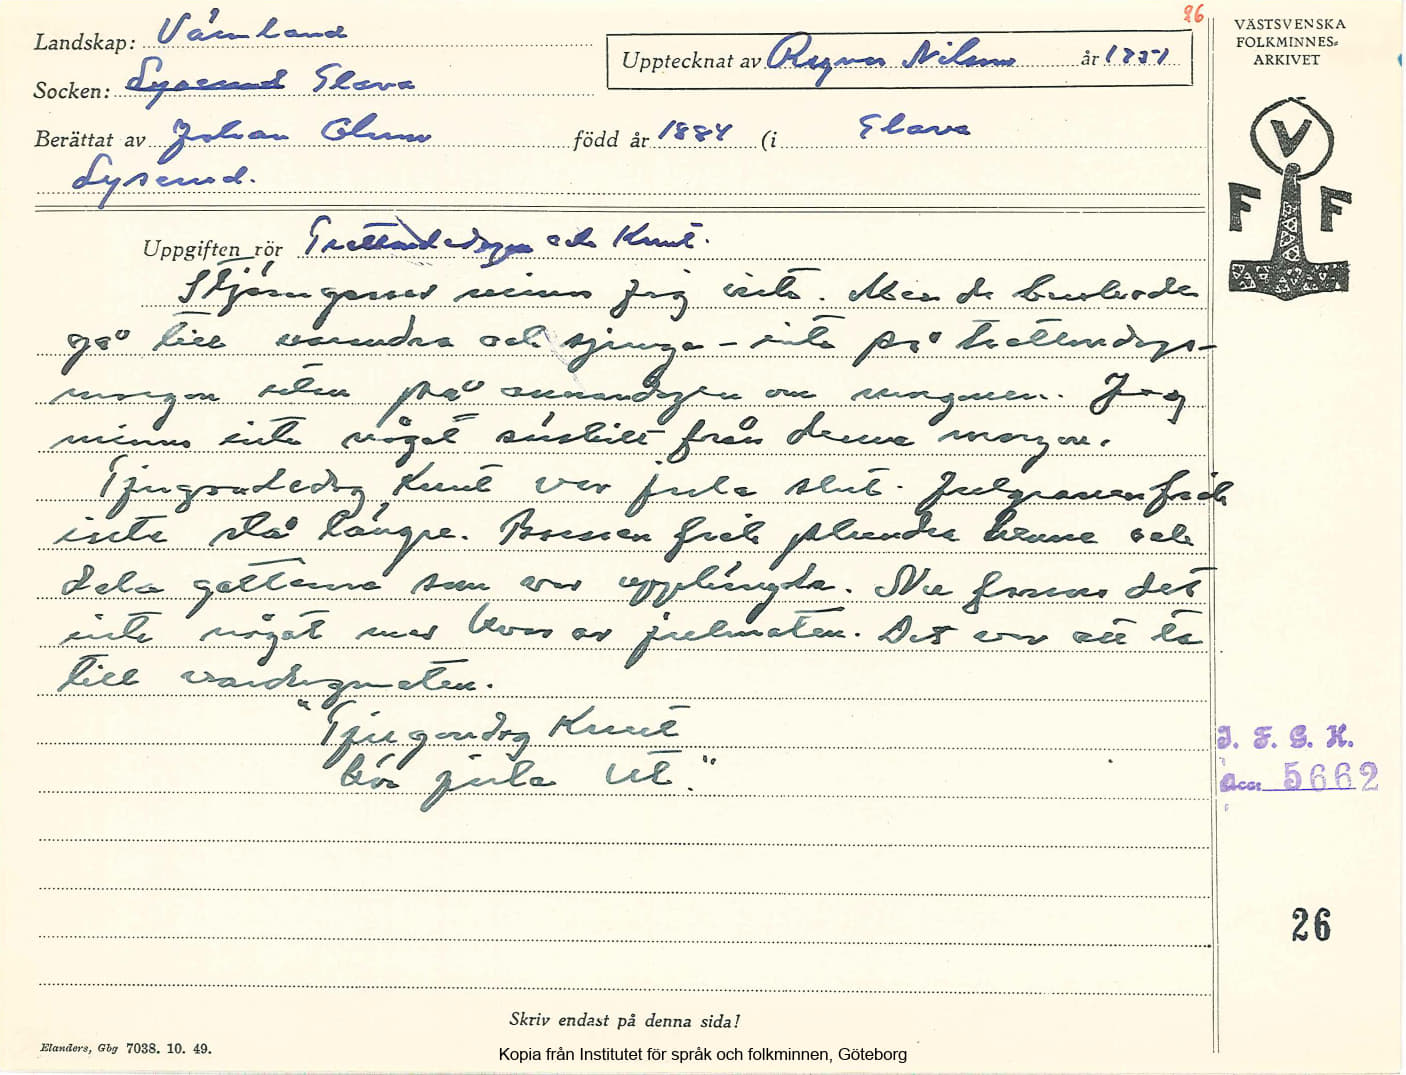 26
VÄSTSVENSKA
FOLKMINNES-
ARKIVET
Landskap: Värmland
Upptecknat av Ragnar Nilsson år 1951
Socken: Lyserud Glava
Berättat av Johan Olsson född år 1884 (i Glava
Lyserud.
V
F F
Uppgiften rör Trettondedagen och Knut.
Stjärngossar minns jag inte. Men de brukade
gå till varandra och sjunga – inte på trettondags-
morgon utan på annandagen om morgonen. Jag
minns inte något särskilt från denna morgon.
Tjugondedag Knut var jula slut. Julgranen fick
inte stå längre. Barnen fick plundra henne och
dela gotterna som var upphängda. Nu fanns det
inte något mer kvar av julmaten. Det var att ta
till vardagsmaten.
"Tjugondag Knut
kör jula ut."
I. F. G. H.
Acc. 5662
26
Skriv endast på denna sida!
Elanders, Gbg 7038. 10. 49.
Kopia från Institutet för språk och folkminnen, Göteborg